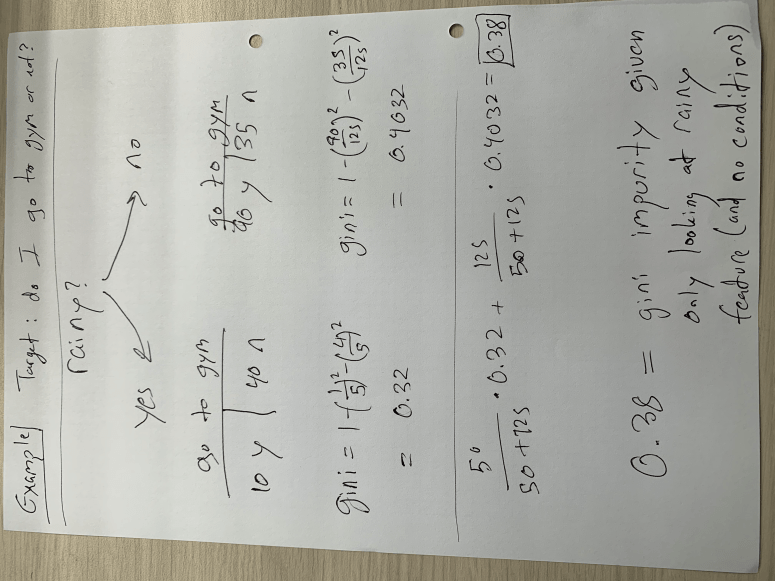 Example Target: do I go to gym or not?
rainy?
yes no
go to gym go to gym
10 y 40 n 90 y 35 n
gini = 1 - (1/5)² - (4/5)² gini = 1 - (90/125)² - (35/125)²
= 0.32 = 0.4032
50/50+125 · 0.32 + 125/50+125 · 0.4032 = 0.38
0.38 = gini impurity given
only looking at rainy
feature (and no conditions)